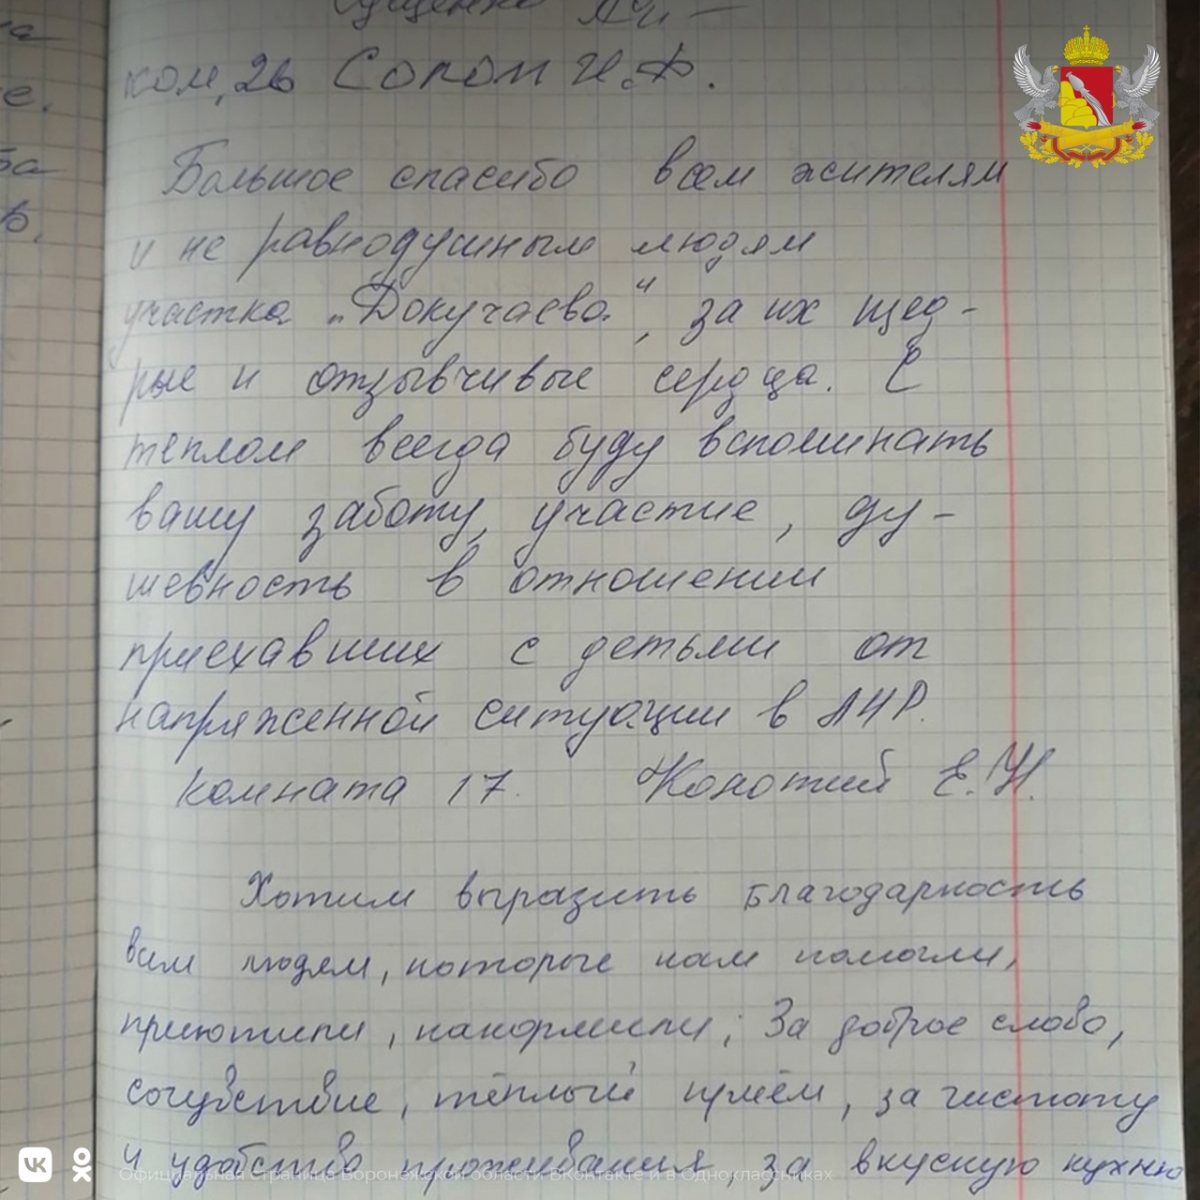 ком, 26 Сопот И.Ф.
Большое спасибо всем жителям
и не равнодушным людям
участка „Докучаево", за их щед-
рые и отзывчивые сердца. С
теплом всегда буду вспоминать
вашу заботу, участие, ду-
шевность в отношении
приехавших с детьми от
напряженной ситуации в ЛНР.
комната 17. Конотий Е.Н.
Хотим выразить благодарность
всем людям, которые нам помогли,
приютили, накормили; За доброе слово,
сочувствие, тёплый приём, за чистоту
и удобство проживания, за вкусную кухню
Официальная страница Воронежской области ВКонтакте и в Одноклассниках